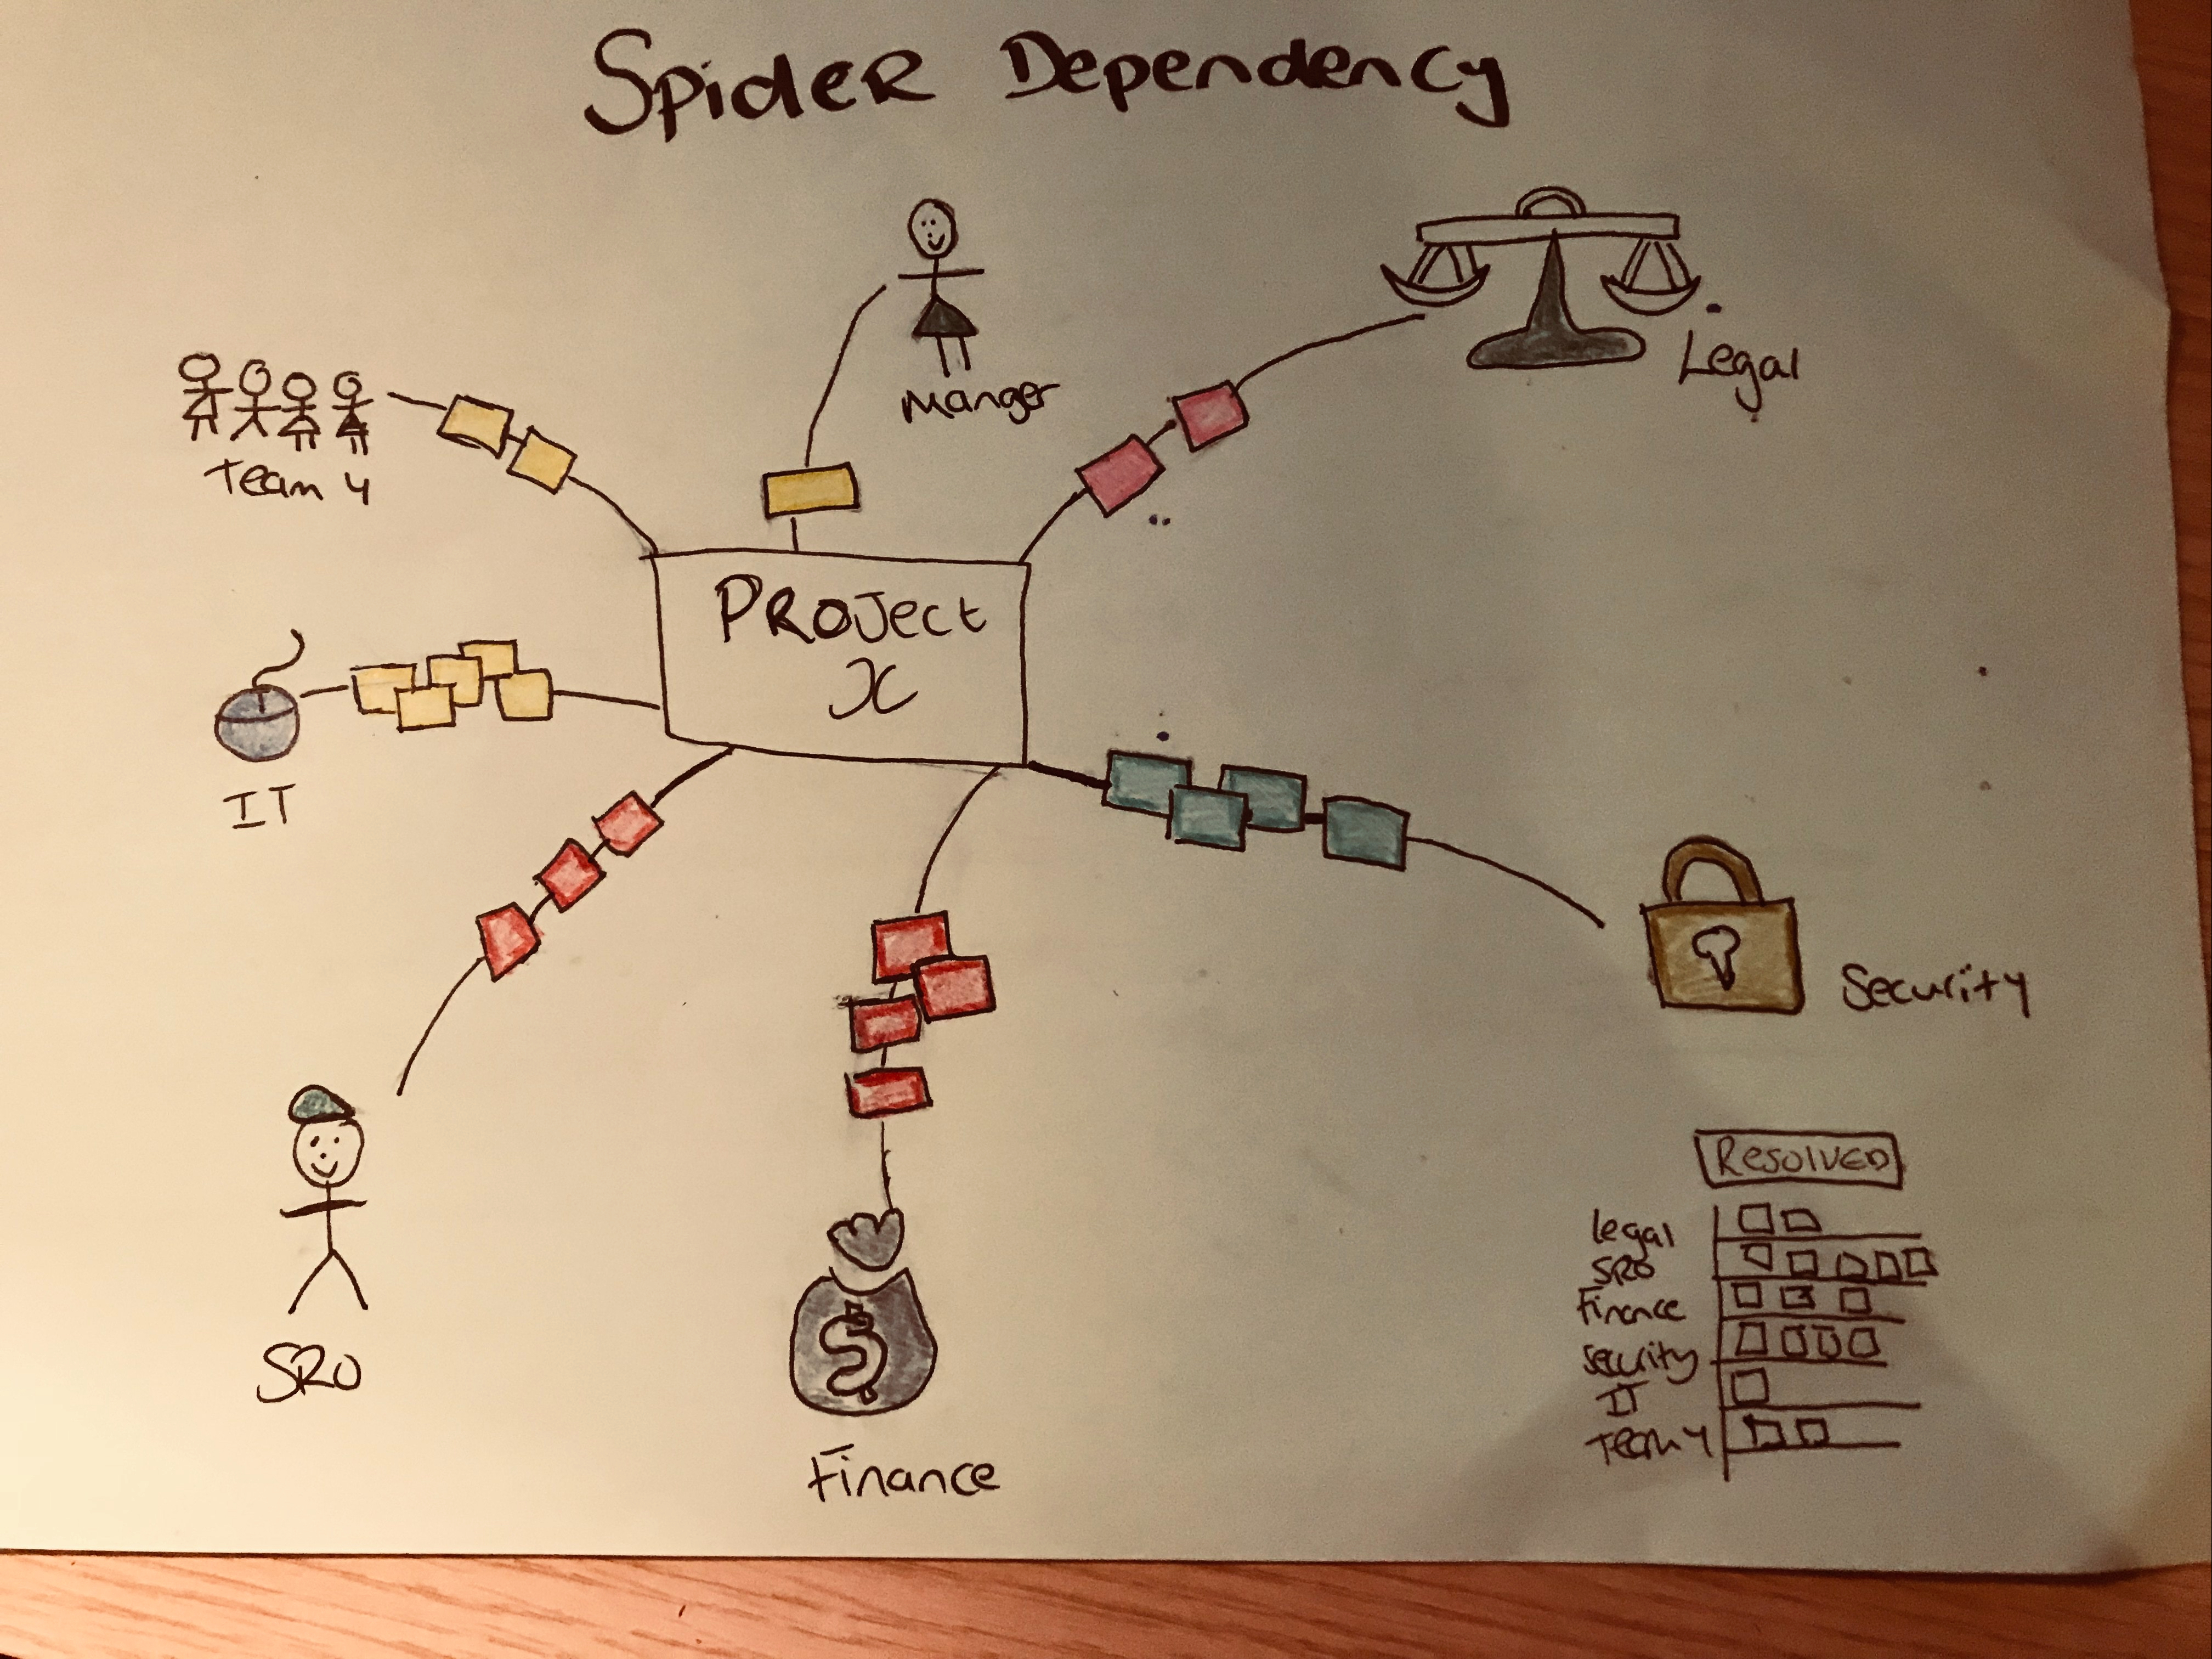 Spider Dependency
Manger
Legal
Team 4
Project
X
IT
Security
SRO
Finance
Resolved
Legal
SRO
Finance
Security
IT
Team 4